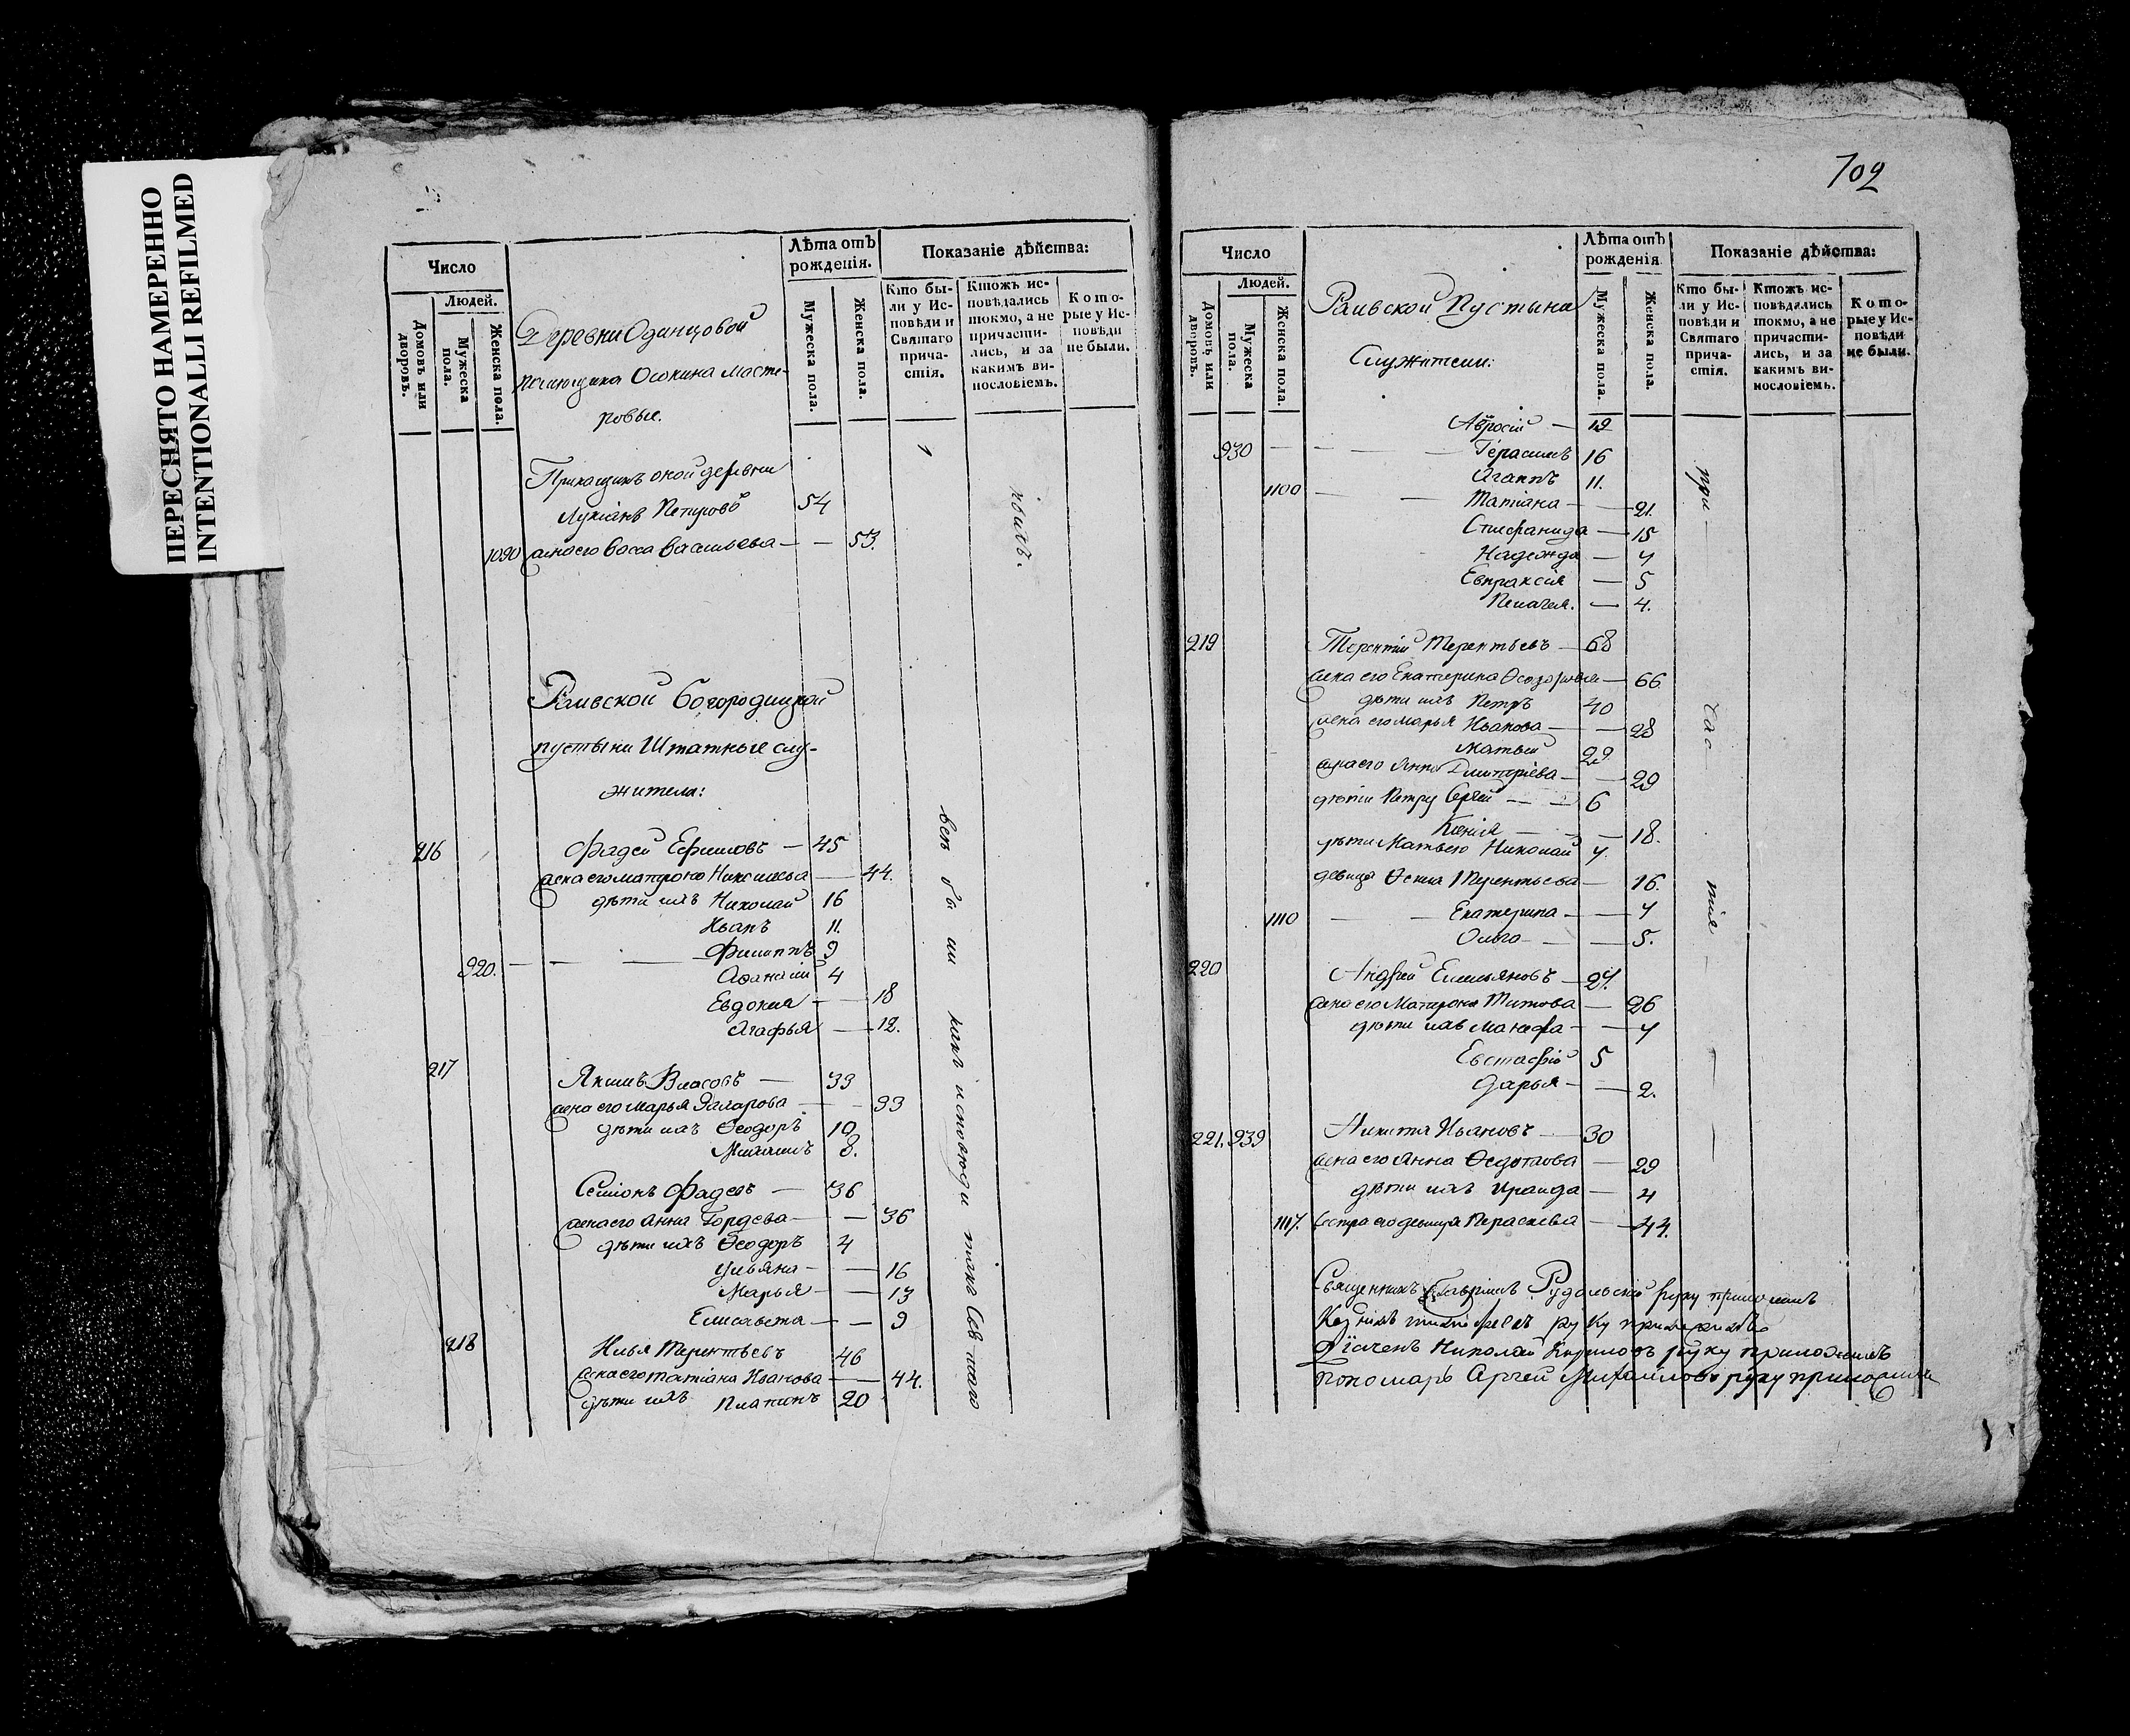 ПЕРЕСНЯТО НАМЕРЕННО
INTENTIONALLI REFILMED
Число
Людей.
Домовъ или дворовъ.
Мужеска пола.
Женска пола.
Лѣта отъ рожденія.
Мужеска пола.
Женска пола.
Показаніе дѣйства:
Кто бы-
ли у Ис-
повѣди и
Святаго
прича-
стія.
Ктожъ ис-
повѣдались
токмо, а не
причасти-
лись, и за
какимъ ви-
нословіемъ.
Кото-
рые у Ис-
повѣди
не были.
Деревни Одинцовой
помещика Осокина масте-
ровые.
Прикащикъ оной деревни
Лукіанъ Петровъ 54
1090 жена его Васса Васильева — — 53.
Раивской Богородицкой
пустыни Штатные слу-
жители:
216 Фадей Ефимовъ — 45
жена его Матрона — 44.
дѣти ихъ Николай 16
Иванъ 11.
920. — — — Филиппъ 9
Афанасій 4
Евдокия — — 18
Агафья — 12.
217 Якимъ Власовъ — 33
жена его Марья Захарова — — 33
дѣти ихъ Ѳеодоръ 10
Михаилъ 8.
Семіонъ Фадеевъ — 36
жена его Анна Гордеева — — 36
дѣти ихъ Ѳеодоръ 4
Ульяна — — 16
Марья — — 13
Елисавета — — 9
218 Илья Терентьевъ 46
жена его Татіана Иванова — 44.
дѣти ихъ Платонъ 20
всѣ бы ли какъ исповѣди такъ Свя таго
702
Число
Людей.
Домовъ или дворовъ.
Мужеска пола.
Женска пола.
Раивской Пустыни
Служители:
Лѣта отъ рожденія
Мужеска пола.
Женска пола.
Показаніе дѣйства:
Кто бы-
ли у Ис-
повѣди и
Святаго
прича-
стія.
Ктожъ ис-
повѣдались
токмо, а не
причасти-
лись, и за
какимъ ви-
нословіемъ.
Кото-
рые у Ис-
повѣди
не были.
930 — — — Герасимъ 16
Агапъ 11.
1100 — — Татіана — — 21.
Стефанида — 15
Надежда — 7
Евпраксія — 5
Пелагея. — 4.
219 Терентій Терентьевъ — 68
жена его Екатерина Ѳеодорова — 66
дѣти ихъ Петръ 40
жена его Марья Иванова — — 28
Матвей 29
жена его Анна Дмитріева — — 29
дѣти Петру Сергей — — 6
Ксенія — — 18.
дѣти Матвею Николай 7.
девица Терентьева — 16.
1110 — — Екатерина — — 7
Ольга — — 5.
220 Андрей Емельяновъ — 27.
жена его Матрона Титова — 26
дѣти ихъ — — 7
Евстафій 5
Дарья — — 2.
221. 939 Никита Ивановъ — 30
жена его Анна Ѳедотова — 29
дѣти ихъ Ираида — 4
1117. сестра его девица Параскева — 44.
при — час — тія —
Священникъ Гавріилъ руку приложилъ
руку приложилъ
Діаченъ Николай Кириловъ руку приложилъ
Пономарь Сергей Михаиловъ руку приложилъ